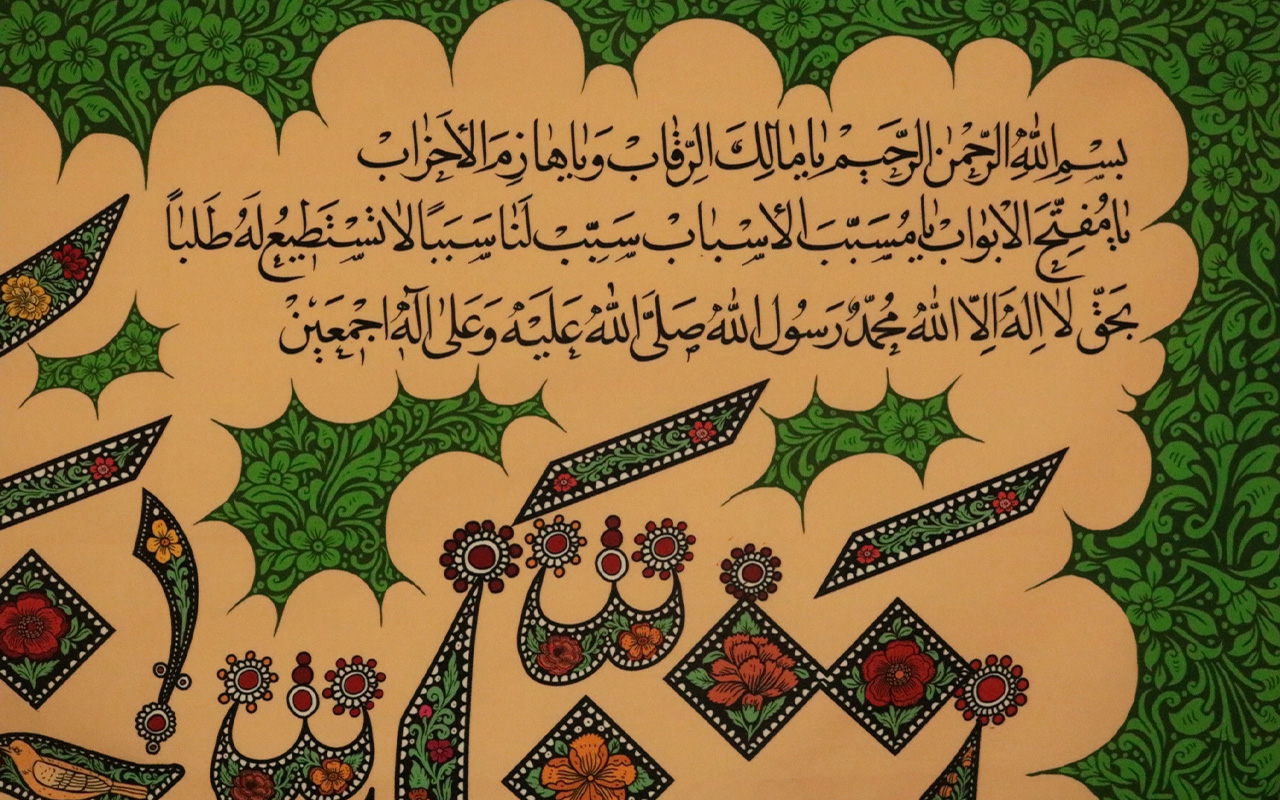 بِسْمِ اللّٰهِ الرَّحْمٰنِ الرَّحَيٖمْ يٰا مٰالِكَ الرِّقٰابْ وَيٰا هٰازِمَ الْأَحْزٰابْ
يٰا مُفَتِّحَ الْأَبْوٰابْ يٰا مُسَبِّبَ الْأَسْبٰابْ سَبِّبْ لَنٰا سَبَبًا لٰا نَسْتَطٖيعُ لَهُ طَلَبٰاً
بِحَقِّ لٰا اِلٰهَ اِلَّا اللّٰهُ مُحَمَّدٌ رَسُولُ اللّٰهُ صَلَّى اللّٰهُ عَلَيْهِ وَعَلىٰ آلِهٖ اجْمَعٖينْ